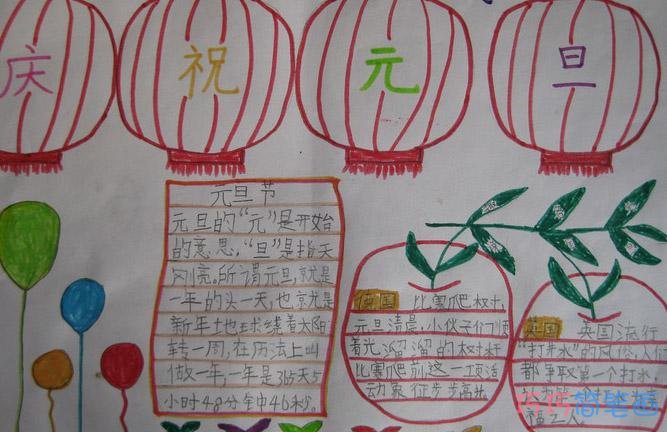 庆祝元旦
元旦节
元旦的“元”是开始
的意思,“旦”是指天
刚亮。所谓元旦,就是
一年的头一天,也就是
新年地球绕着太阳
转一周,在历法上叫
做一年,一年是365天5
小时48分钟46秒。
德国 比赛爬树,
元旦清晨,小伙子们顺
着光溜溜的树干
比赛爬前,这一项活
动象征步步高升。
英国 英国流行
“打井水”的风俗,人们
都争取第一个打水
福之人。